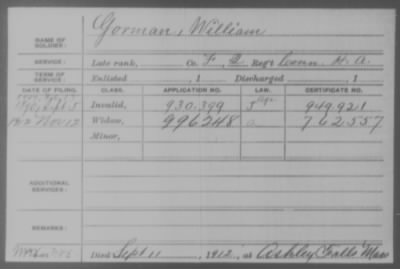 NAME OF SOLDIER: Gorman, William
SERVICE: Late rank, Co. F, 2 Reg't Conn. H. A.
TERM OF SERVICE: Enlisted , 1 Discharged , 1
DATE OF FILING. CLASS. APPLICATION NO. LAW. CERTIFICATE NO.
Invalid, 930.399 949.921
1912 Nov 12 Widow, 996248 a 762.557
Minor,
ADDITIONAL SERVICES:
REMARKS:
Died Sept 11, 1912, at Ashley Falls Mass